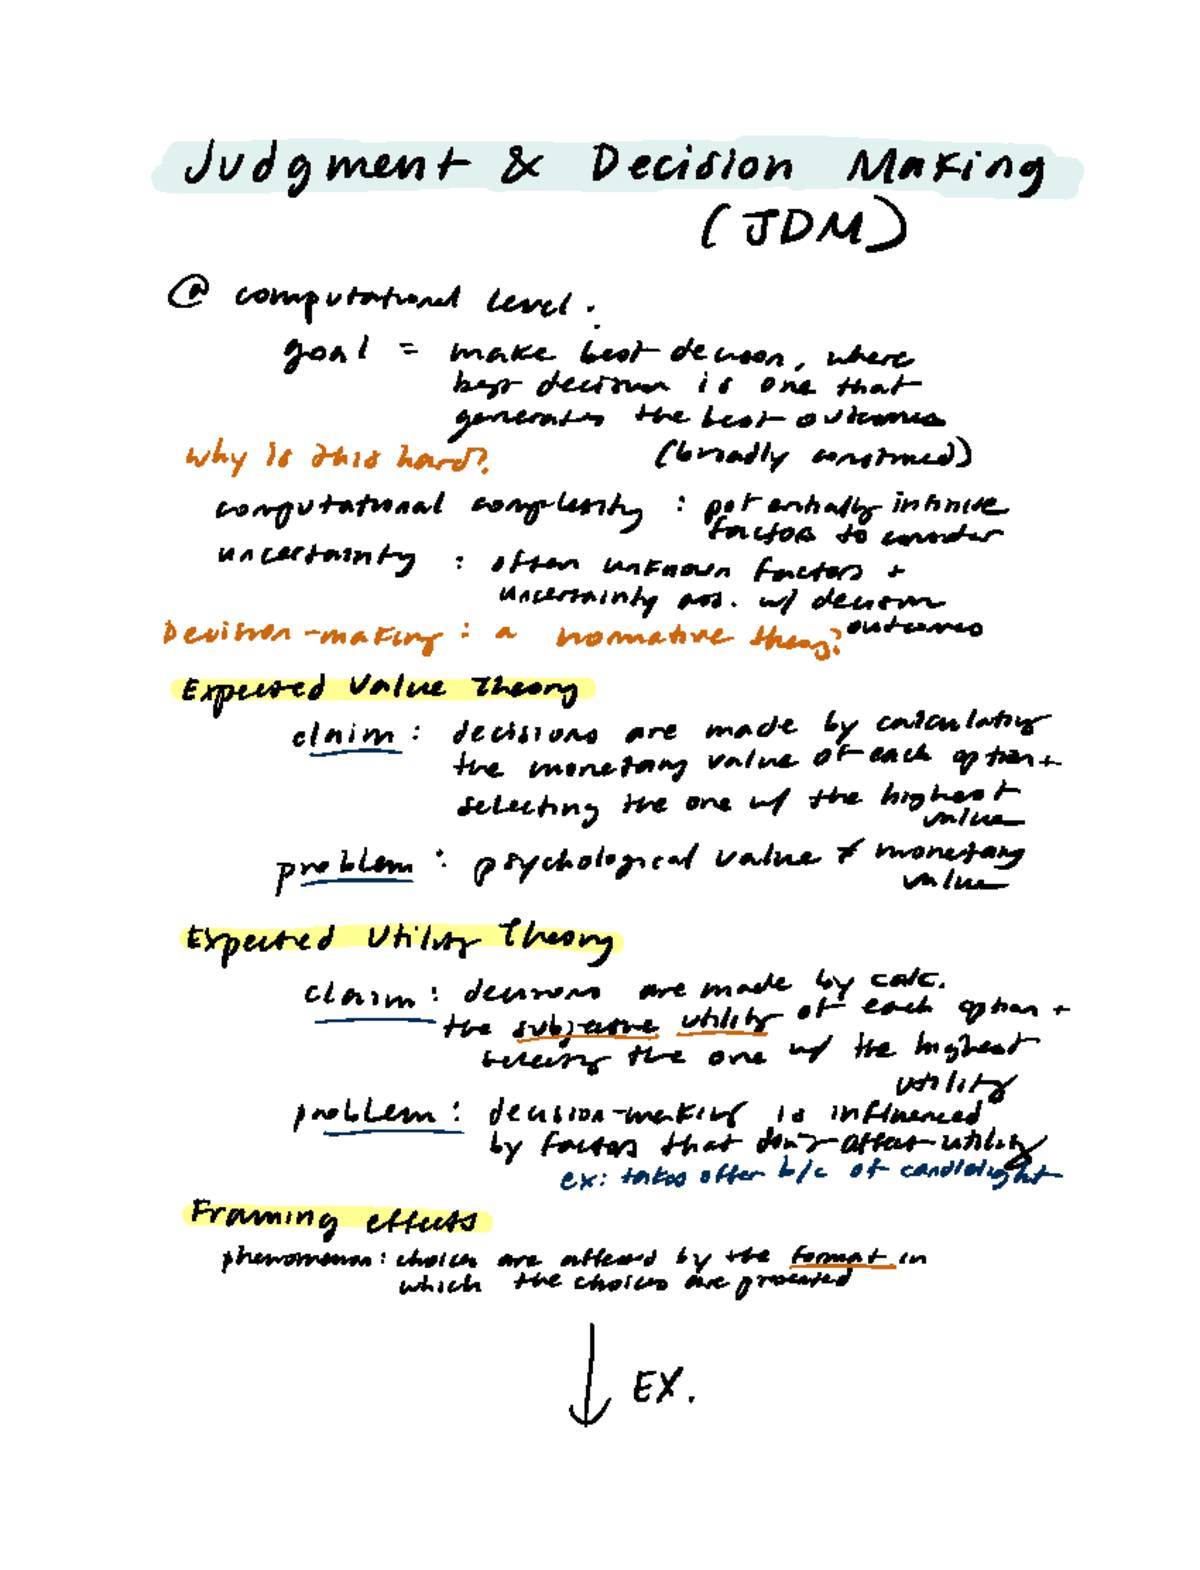 Judgment & Decision Making
(JDM)
@ computational level:
goal = make best decision, where
best decision is one that
generates the best outcomes
(broadly construed)
why is this hard?
computational complexity : potentially infinite
factors to consider
uncertainty : often unknown factors +
uncertainty ass. w/ decision
outcomes
Decision-making : a normative theory?
Expected Value Theory
claim : decisions are made by calculating
the monetary value of each option +
selecting the one w/ the highest
value
problem : psychological value ≠ monetary
value
Expected Utility Theory
claim : decisions are made by calc.
the subjective utility of each option +
selecting the one w/ the highest
utility
problem : decision-making is influenced
by factors that don't affect utility
ex: takes offer b/c of candlelight
Framing effects
phenomenon : choices are affected by the format in
which the choices are presented
↓ EX.